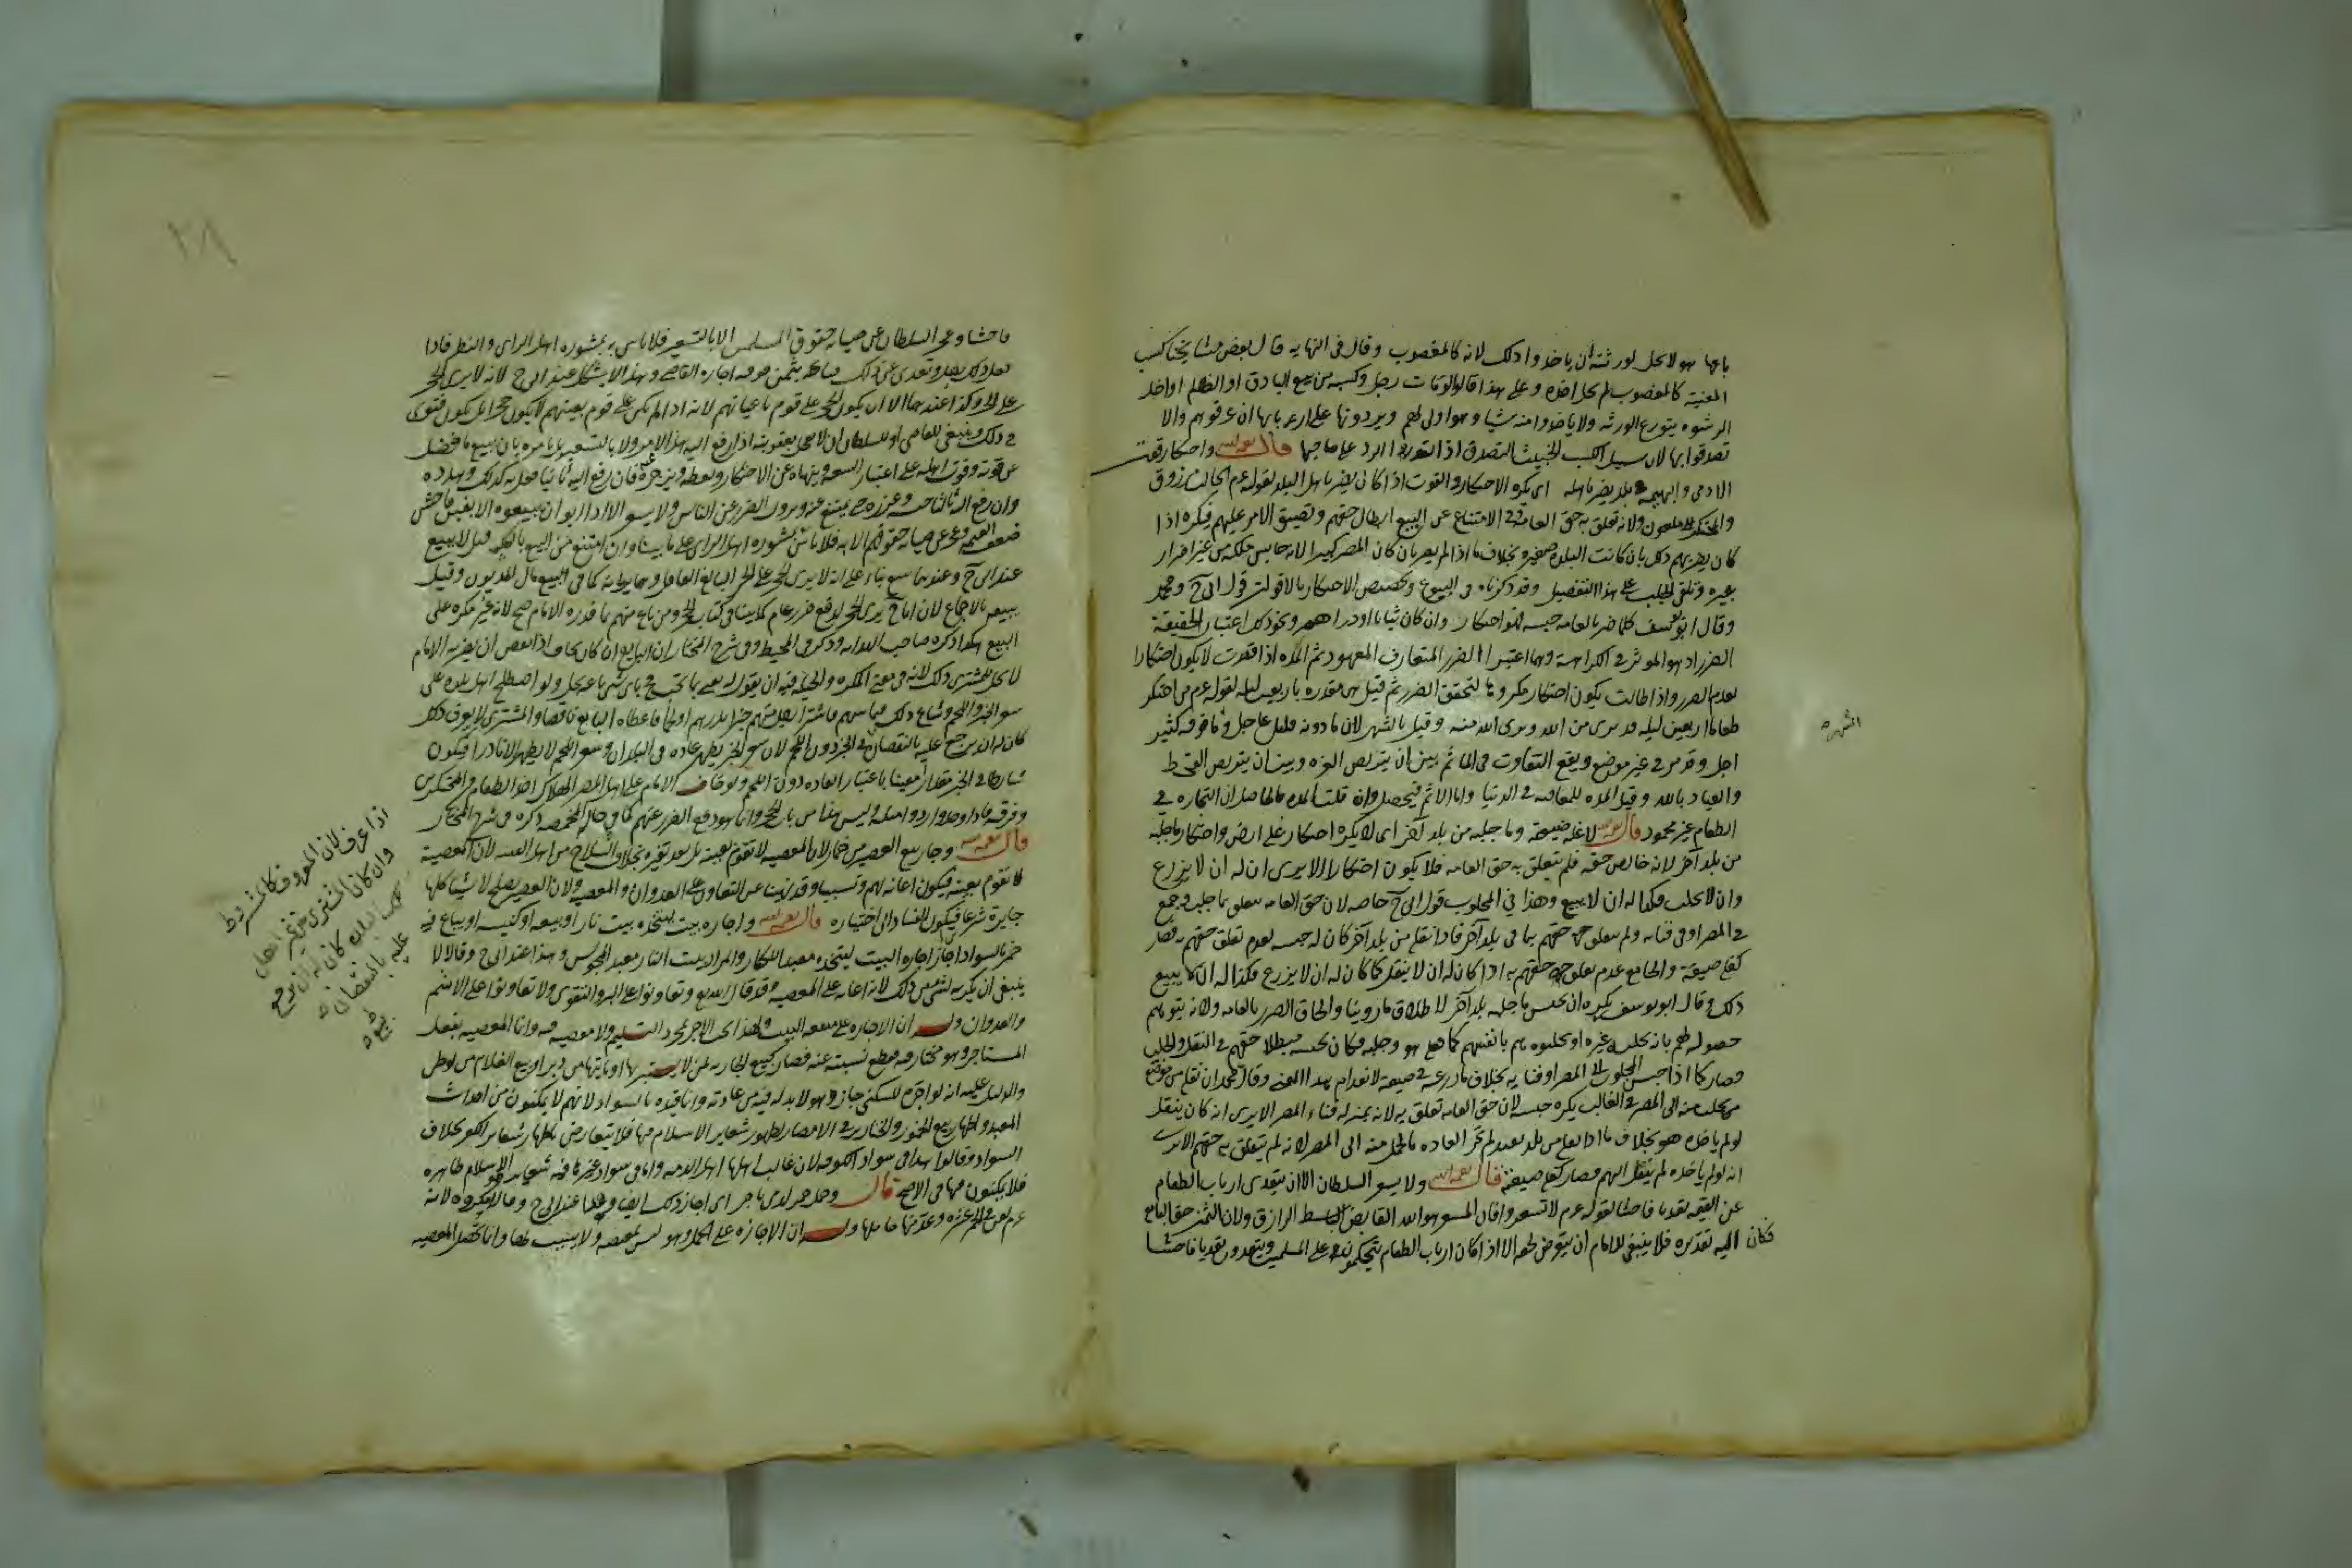 باعها هو لا يحل لورثته ان ياخذوا ذلك لانه كالمغصوب وقال فى النهايه قال بعض مشايخنا كسب
المغنية كالمغصوب لم يحل اخذه وعلى هذا قالوا لو مات رجل وكسبه من بيع الباذق او الظلم او اخذ
الرشوه يتورع الورثه ولا ياخذوا منه شيا وهو اولى لهم ويردونها على اربابها ان عرفوهم والا
تصدقوا بها لان سبيل الكسب الخبيث التصدق اذا تعذر الرد على صاحبها قال رحمه الله واحتكار قوت
الادمى والبهيمه فى بلد يضر باهله اى يكره الاحتكار فى القوت اذا كان يضر باهل البلد لقوله عم الجالب مرزوق
والمحتكر ملعون ولانه تعلق به حق العامه وفى الامتناع عن البيع ابطال حقهم وتضييق الامر عليهم فيكره اذا
كان يضر بهم ذلك بان كانت البلده صغيره بخلاف ما اذا لم يضر بان كان المصر كبيرا لانه حابس ملكه من غير اضرار
بغيره وتلقى الجلب على هذا التفصيل وقد ذكرناه فى البيوع وتخصيص الاحتكار بالاقوات قول ابى ح ومحمد
وقال ابو يوسف كلما ضر بالعامه حبسه فهو احتكار وان كان ثيابا او دراهم ونحو ذلك اعتبارا لحقيقة
الضرر اذ هو الموثر فى الكراهة وهما اعتبرا الضرر المتعارف المعهود ثم المده اذا قصرت لا يكون احتكارا
لعدم الضرر واذا طالت يكون احتكارا مكروها لتحقق الضرر ثم قيل هى مقدره باربعين ليله لقوله عم من احتكر
طعاما اربعين ليله فقد برى من الله وبرى الله منه وقيل بالشهر لان ما دونه قليل عاجل وما فوقه كثير
اجل وقد مر فى غير موضع ويقع التفاوت فى الماثم بين ان يتربص العزه وبين ان يتربص القحط
والعياذ بالله وقيل المده للمعاقبه فى الدنيا واما الاثم فيحصل وان قلت المده فالحاصل ان التجاره فى
الطعام غير محمود قال رحمه الله لا غلة ضيعته وما جلبه من بلد آخر اى لا يكره احتكار غلة ارضه واحتكار ما جلبه
من بلد آخر لانه خالص حقه فلم يتعلق به حق العامه فلا يكون احتكارا الا يرى ان له ان لا يزرع
وان لا يجلب فكذا له ان لا يبيع وهذا فى المجلوب قول ابى ح خاصه لان حق العامه يتعلق بما جلب وجمع
فى المصر او فى فنائه ولم يتعلق حقهم بما فى بلد آخر فاذا نقل من بلد آخر كان له حبسه لعدم تعلق حقهم به فصار
كغلة ضيعته والجامع عدم تعلق حقهم به اذا كان له ان لا ينقل كما كان له ان لا يزرع فكذا له ان لا يبيع
ذلك وقال ابو يوسف يكره ان يحبس ما جلبه من بلد آخر لاطلاق ما روينا والحاق الضرر بالعامه ولانه يتوهم
حصوله لهم بان يجلبه غيره او يجلبوه هم بانفسهم كما فعل هو وجلبه فكان بحبسه مبطلا حقهم فى النقل والجلب
وصار كما اذا حبس المجلوب الى المصر او فنائه بخلاف ما زرعه فى ضيعته لانعدام هذا المعنى وقال محمد ان نقل من موضع
يجلب منه الى المصر فى الغالب يكره حبسه لان حق العامه تعلق به لانه بمنزله فناء المصر الا يرى انه كان ينقل
لو لم ياخذه هو بخلاف ما اذا نقل من بلد بعيد لم تجر العاده بالحمل منه الى المصر لانه لم يتعلق به حقهم الا يرى
انه لو لم ياخذه لم ينقل اليهم فصار كغلة ضيعته قال رحمه الله ولا يسعر السلطان الا ان يتعدى ارباب الطعام
عن القيمه تعديا فاحشا لقوله عم لا تسعروا فان المسعر هو الله القابض الباسط الرازق ولان الثمن حق البائع
فكان اليه تقديره فلا ينبغى للامام ان يتعرض لحقه الا اذا كان ارباب الطعام يتحكمون على المسلمين ويتعدون تعديا فاحشا
الشهر
٢٨
فاحشا وعجز السلطان عن صيانه حقوق المسلمين الا بالتسعير فلا باس به بمشوره اهل الراى والنظر فاذا
فعل ذلك على رجل وتعدى عن ذلك فباعه بثمن فوقه اجازه القاضى وهذا لا يشكل عند ابى ح لانه لا يرى الحجر
على الحر وكذا عندهما الا ان يكون الحجر على قوم باعيانهم لانه اذا لم يكن على قوم بعينهم لا يكون حجرا بل يكون فتوى
فى ذلك وينبغى للقاضى او للسلطان ان لا يعجل بعقوبته اذا رفع اليه هذا الامر ولا بالتسعير بل يامره بان يبيع ما فضل
عن قوته وقوت اهله على اعتبار السعه وينهاه عن الاحتكار ويعظه ويزجره عنه فان رفع اليه ثانيا فعل به كذلك وهدده
وان رفع اليه ثالثا حبسه وعزره حتى يمتنع عنه ويزول الضرر عن الناس ولا يسعر الا اذا ابوا ان يبيعوه الا بغبن فاحش
ضعف القيمه وعجز عن صيانه حقوقهم الا به فلا باس بمشوره اهل الراى على ما بينا وان امتنع من البيع بالكليه قيل لا يبيع
عند ابى ح وعندهما يبيع بناء على انه لا يرى الحجر على الحر البالغ العاقل وهما يريانه كما فى بيع مال المديون وقيل
يبيع بالاجماع لان ابا ح يرى الحجر لدفع ضرر عام كما بينا فى كتاب الحجر ومن باع منهم بما قدره الامام صح لانه غير مكره على
البيع هكذا ذكره صاحب الهدايه وذكر فى المحيط وفى شرح المختار ان البايع ان كان يخاف اذا نقص ان يضربه الامام
لا يحل للمشترى ذلك لانه فى معنى المكره والحيله فيه ان يقول له بعنى بما تحب فباى شى باعه يحل ولو اصطلح اهل بلده على
سعر الخبز واللحم وشاع ذلك فيما بينهم فاشترا رجل منهم خبزا بدرهم او لحما فاعطاه البايع ناقصا والمشترى لا يعرف ذلك
كان له ان يرجع عليه بالنقصان فى الخبز دون اللحم لان سعر الخبز يظهر عاده فى البلدان وسعر اللحم لا يظهر الا نادرا فيكون
شارطا فى الخبز مقدارا معينا باعتبار العاده دون اللحم ولو خاف الامام على اهل المصر الهلاك اخذ الطعام من المحتكرين
وفرقه فاذا وجدوا ردوا مثله وليس هذا من باب الحجر وانما هو دفع الضرر عنهم كما فى حال المخمصه ذكره فى شرح المختار
قال رحمه الله وجاز بيع العصير من خمار لان المعصيه لا تقوم بعينه بل بعد تغيره بخلاف السلاح من اهل الفتنه لان المعصية
تقوم بعينه فيكون اعانه لهم وتسببا وقد نهينا عن التعاون على العدوان والمعصيه ولان العصير يصلح لاشيا كلها
جايزة شرعا فيكون الفساد الى اختياره قال رحمه الله واجاره بيت ليتخذه بيت نار او بيعه او كنيسه او يباع فيه
خمر بالسواد اى جاز اجاره البيت ليتخذه معبدا للكفار والمراد ببيت النار معبد المجوس وهذا عند ابى ح وقالا لا
ينبغى ان يكريه لشى من ذلك لانه اعانه على المعصيه وقد قال الله تع وتعاونوا على البر والتقوى ولا تعاونوا على الاثم
والعدوان وله ان الاجاره على منفعه البيت ولهذا يجب الاجر بمجرد التسليم ولا معصيه فيه وانما المعصيه بفعل
المستاجر وهو مختار فيه فقطع نسبته عنه فصار كبيع الجاريه لمن لا يستبريها او ياتيها من دبر او بيع الغلام من لوطى
والدليل عليه انه لو اجره للسكنى جاز وهو لا بد له فيه من عبادته وانما قيده بالسواد لانهم لا يمكنون من احداث
المعبد واظهار بيع الخمور والخنازير فى الامصار لظهور شعاير الاسلام فيها فلا يتعارض باظهار شعاير الكفر بخلاف
السواد وقالوا هذا فى سواد الكوفه لان غالب اهلها اهل الذمه واما فى سواد غيرها فيه شعاير الاسلام ظاهره
فلا يمكنون فيها فى الاصح قال وحمل خمر لذمى باجر اى جاز ذلك ايضا وهذا عند ابى ح وقالا يكره لانه
عم لعن فى الخمر عشره وعد منها حاملها وله ان الاجاره على الحمل وهو ليس بمعصيه ولا بسبب لها وانما تحصل المعصيه
اذا عرف لان المعروف كالمشروط
وان كان المشترى من غير اهل
البلده كان له ان يرجع
عليه بالنقصان